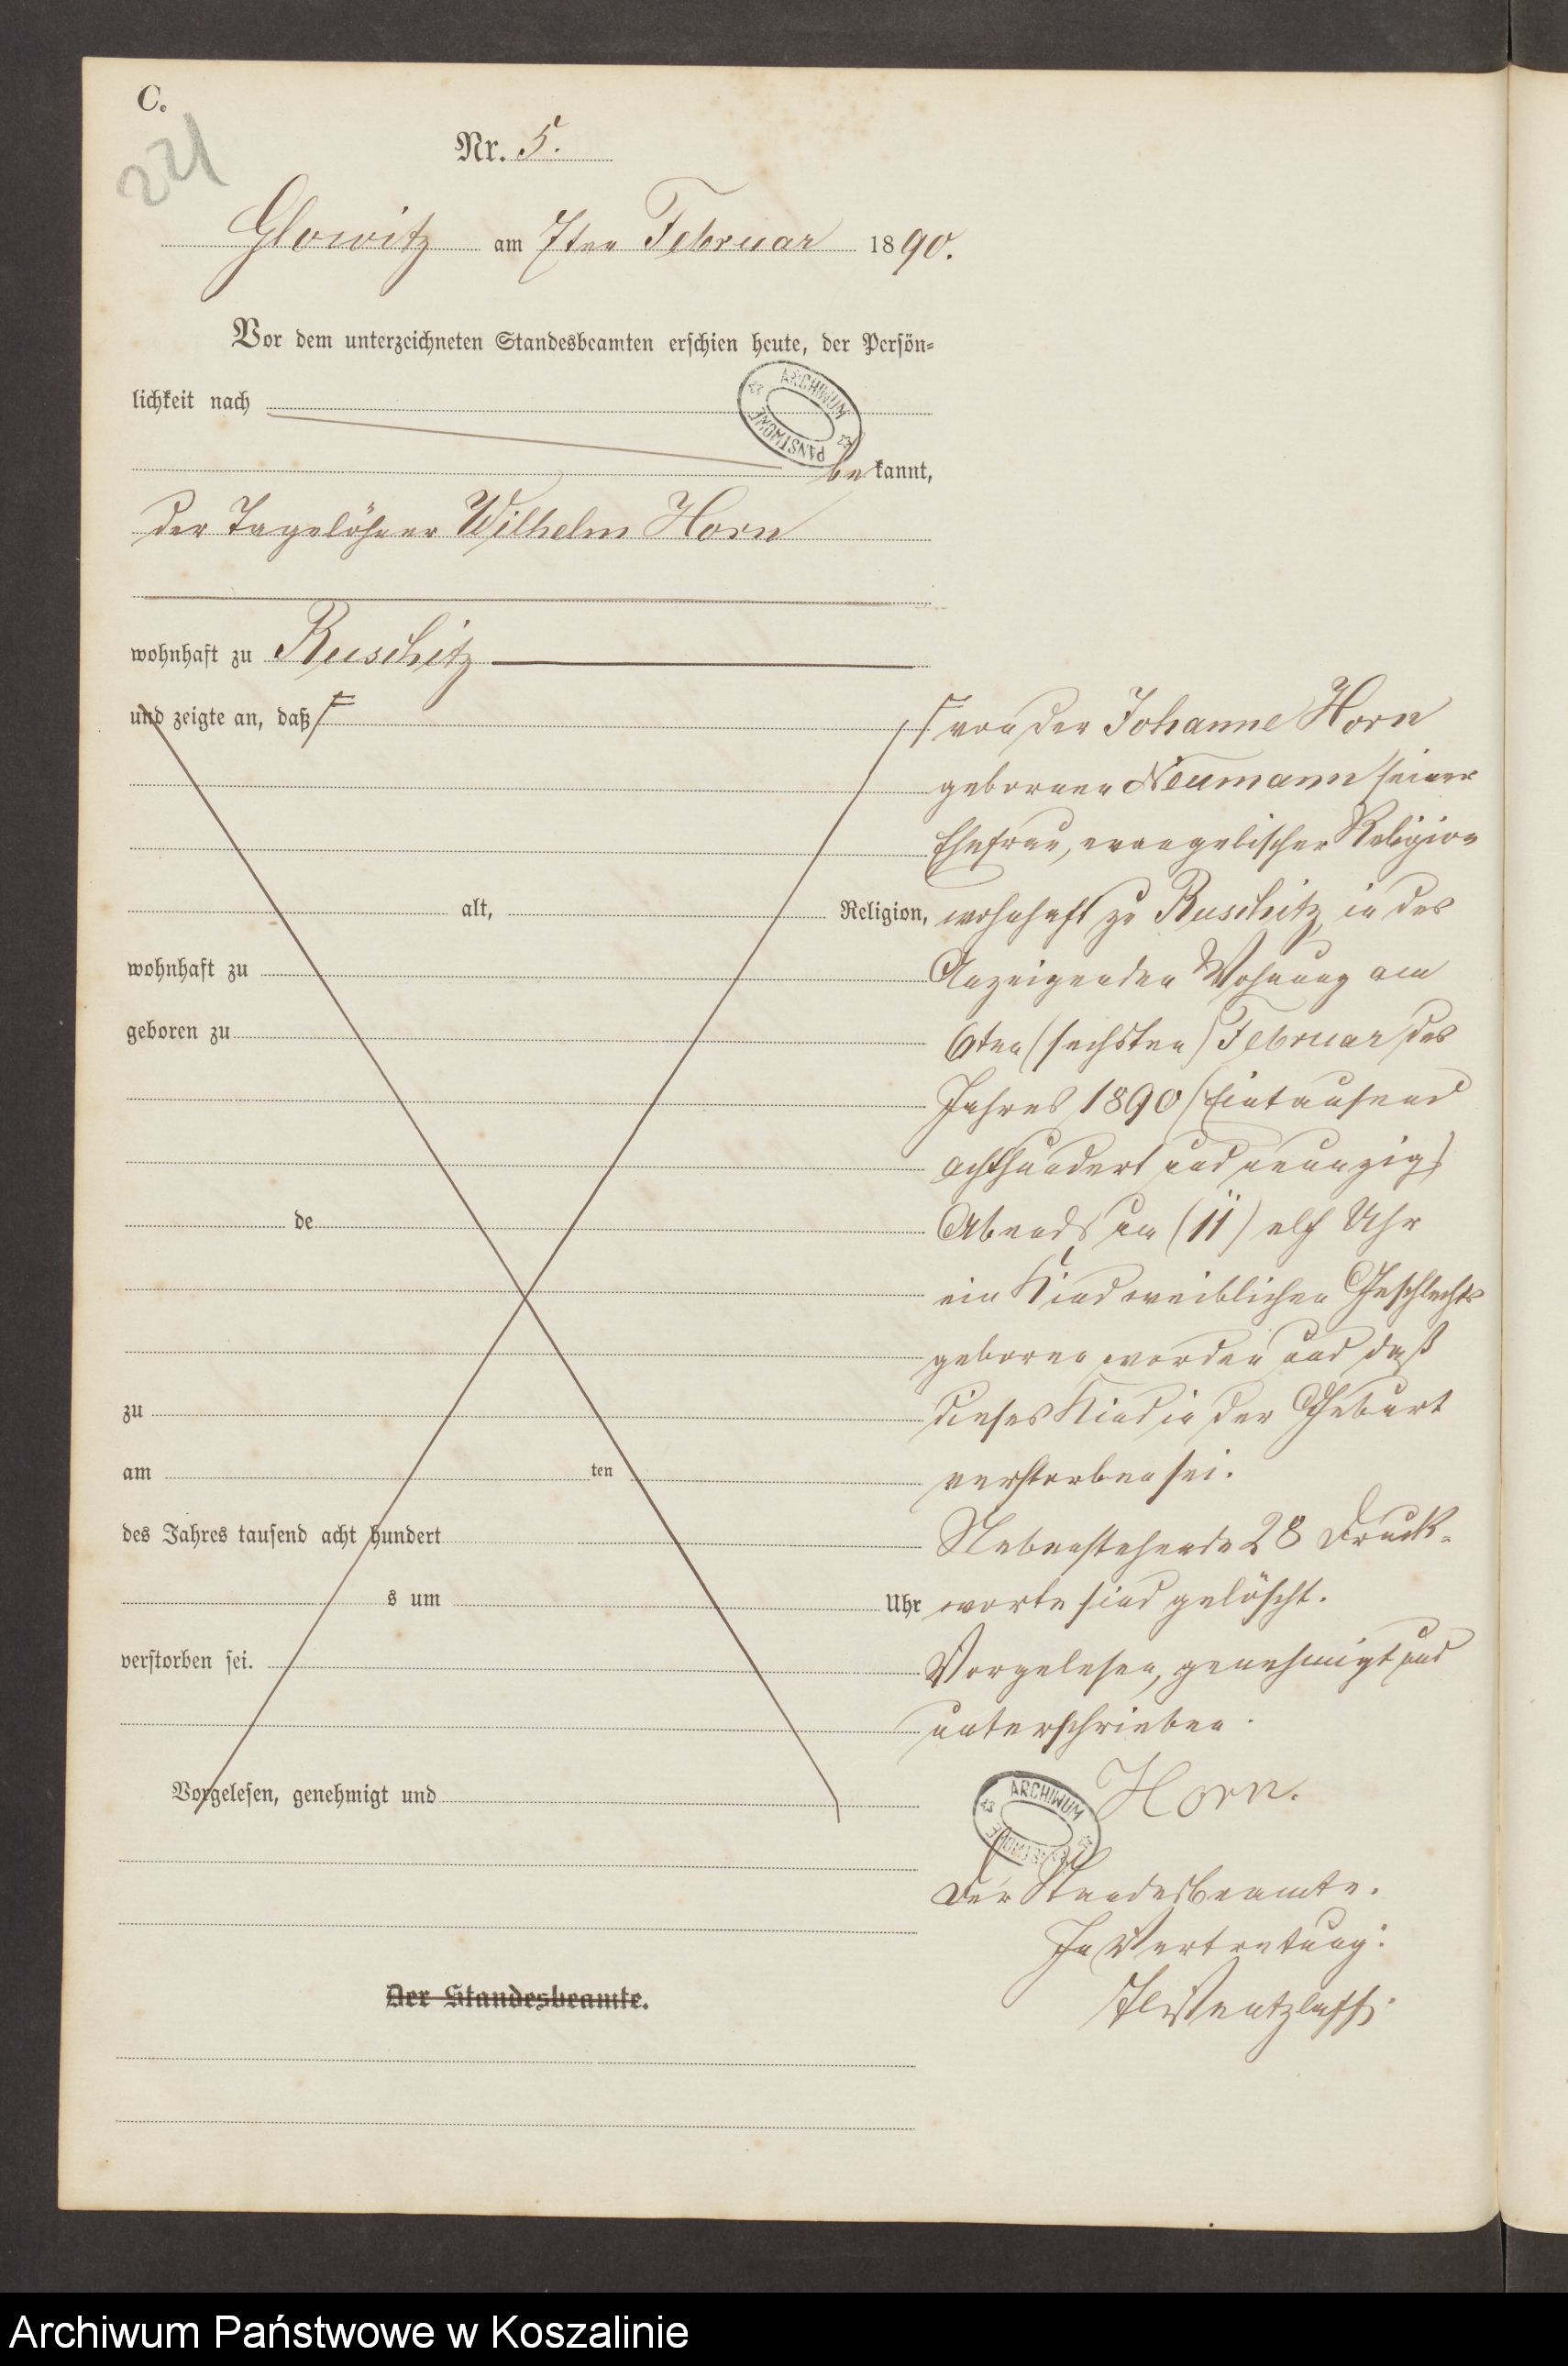 C.
221
Nr. 5.
Glowitz am 7ten Februar 1890.
Vor dem unterzeichneten Standesbeamten erschien heute, der Persön-
lichkeit nach
bekannt,
der Tagelöhner Wilhelm Horn
wohnhaft zu Ruschitz
und zeigte an, daß
alt, Religion,
wohnhaft zu
geboren zu
de
zu
am ten
des Jahres tausend acht hundert
s um Uhr
verstorben sei.
Vorgelesen, genehmigt und
Der Standesbeamte.
von der Johanne Horn
geborenen Neumann seiner
Ehefrau, evangelischer Religion
wohnhaft zu Ruschitz, in des
Anzeigenden Wohnung am
6ten (sechsten) Februar des
Jahres 1890 (Eintausend
achthundert und neunzig)
Abends um (11) elf Uhr
ein Kind weiblichen Geschlechts
geboren worden und daß
dieses Kind in der Geburt
verstorben sei.
Nebenstehende 28 Druck-
worte sind gelöscht.
Vorgelesen, genehmigt und
unterschrieben.
Horn.
Der Standesbeamte.
In Vertretung:
Wentzlaff.
ARCHIWUM PAŃSTWOWE
ARCHIWUM
Archiwum Państwowe w Koszalinie